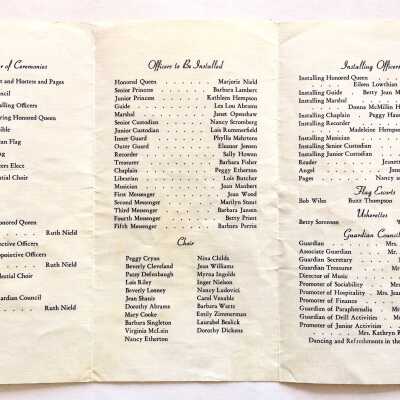 r of Ceremonies
t and Hostess and Pages
ncil
alling Officers
ring Honored Queen
ible
an Flag
ng
ers Elect
ntial Choir
onored Queen
Ruth Nield
ective Officers
pointive Officers
Ruth Nield
ential Choir
uardian Council
Ruth Nield
Officers to Be Installed
Honored Queen Marjorie Nield
Senior Princess Barbara Lambert
Junior Princess Kathleen Hempson
Guide Lea Lou Abrams
Marshal Janet Openshaw
Senior Custodian Nancy Stromberg
Junior Custodian Lois Rummerfield
Inner Guard Phyllis Mehrtens
Outer Guard Eleanor Jensen
Recorder Sally Howen
Treasurer Barbara Fisher
Chaplain Peggy Etherton
Librarian Lois Butcher
Musician Joan Manbert
First Messenger Jean Wood
Second Messenger Marilyn Stout
Third Messenger Barbara Jansen
Fourth Messenger Betty Pratt
Fifth Messenger Barbara Perris
Choir
Peggy Cryan Nina Childs
Beverly Cleveland Jean Williams
Patsy Defenbaugh Myrna Ingolds
Lois Riley Inger Nielson
Beverly Lonney Nancy Ludovici
Jean Shanis Carol Venable
Dorothy Abrams Barbara Watts
Mary Cooke Emily Zimmerman
Barbara Singleton Laurabel Bealick
Virginia McLain Dorothy Dickens
Nancy Etherton
Installing Officers
Installing Honored Queen
Eileen Lowthian
Installing Guide Betty Jean M
Installing Marshal
Donna McMillan H
Installing Chaplain Peggy Hau
Installing Recorder
Madeleine Hempso
Installing Musician
Installing Senior Custodian
Installing Junior Custodian
Reader
Angel Nancy
Pages Nancy
Flag Escorts
Bob Wiles Buzz Thompson
Usherettes
Betty Sorenson W
Guardian Council
Guardian Mrs.
Associate Guardian Mr.
Guardian Secretary
Guardian Treasurer Mrs.
Director of Music
Promoter of Sociability Mrs.
Promoter of Hospitality Mrs. Jea
Promoter of Finance
Guardian of Paraphernalia Mrs.
Guardian of Drill Activities Mr.
Promoter of Junior Activities
Mrs. Kathryn R
Dancing and Refreshments in the